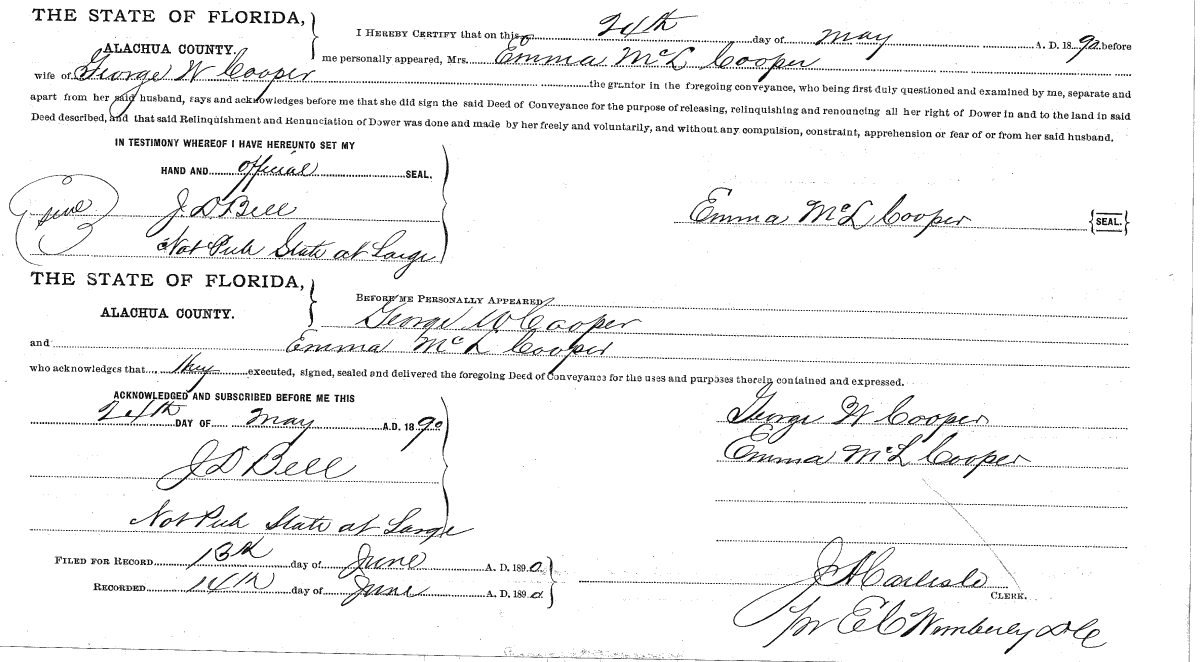 THE STATE OF FLORIDA,
ALACHUA COUNTY.
I HEREBY CERTIFY that on this 24th day of May A. D. 1890 before
me personally appeared, Mrs. Emma McL Cooper
wife of George W Cooper the grantor in the foregoing conveyance, who being first duly questioned and examined by me, separate and
apart from her said husband, says and acknowledges before me that she did sign the said Deed of Conveyance for the purpose of releasing, relinquishing and renouncing all her right of Dower in and to the land in said
Deed described, and that said Relinquishment and Renunciation of Dower was done and made by her freely and voluntarily, and without any compulsion, constraint, apprehension or fear of or from her said husband.
IN TESTIMONY WHEREOF I HAVE HEREUNTO SET MY
HAND AND official SEAL.
J. D Bell
Emma McL Cooper
SEAL.
Not Pub State at Large
THE STATE OF FLORIDA,
ALACHUA COUNTY.
BEFORE ME PERSONALLY APPEARED
George W Cooper
and Emma McL Cooper
who acknowledges that they executed, signed, sealed and delivered the foregoing Deed of Conveyance for the uses and purposes therein contained and expressed.
ACKNOWLEDGED AND SUBSCRIBED BEFORE ME THIS
24th DAY OF May A.D. 1890
George W Cooper
Emma McL Cooper
J D Bell
Not Pub State at Large
FILED FOR RECORD 13th day of June A. D. 1890
RECORDED 14th day of June A. D. 1890
J A Carlisle
CLERK.
pr E C Wimberley D C